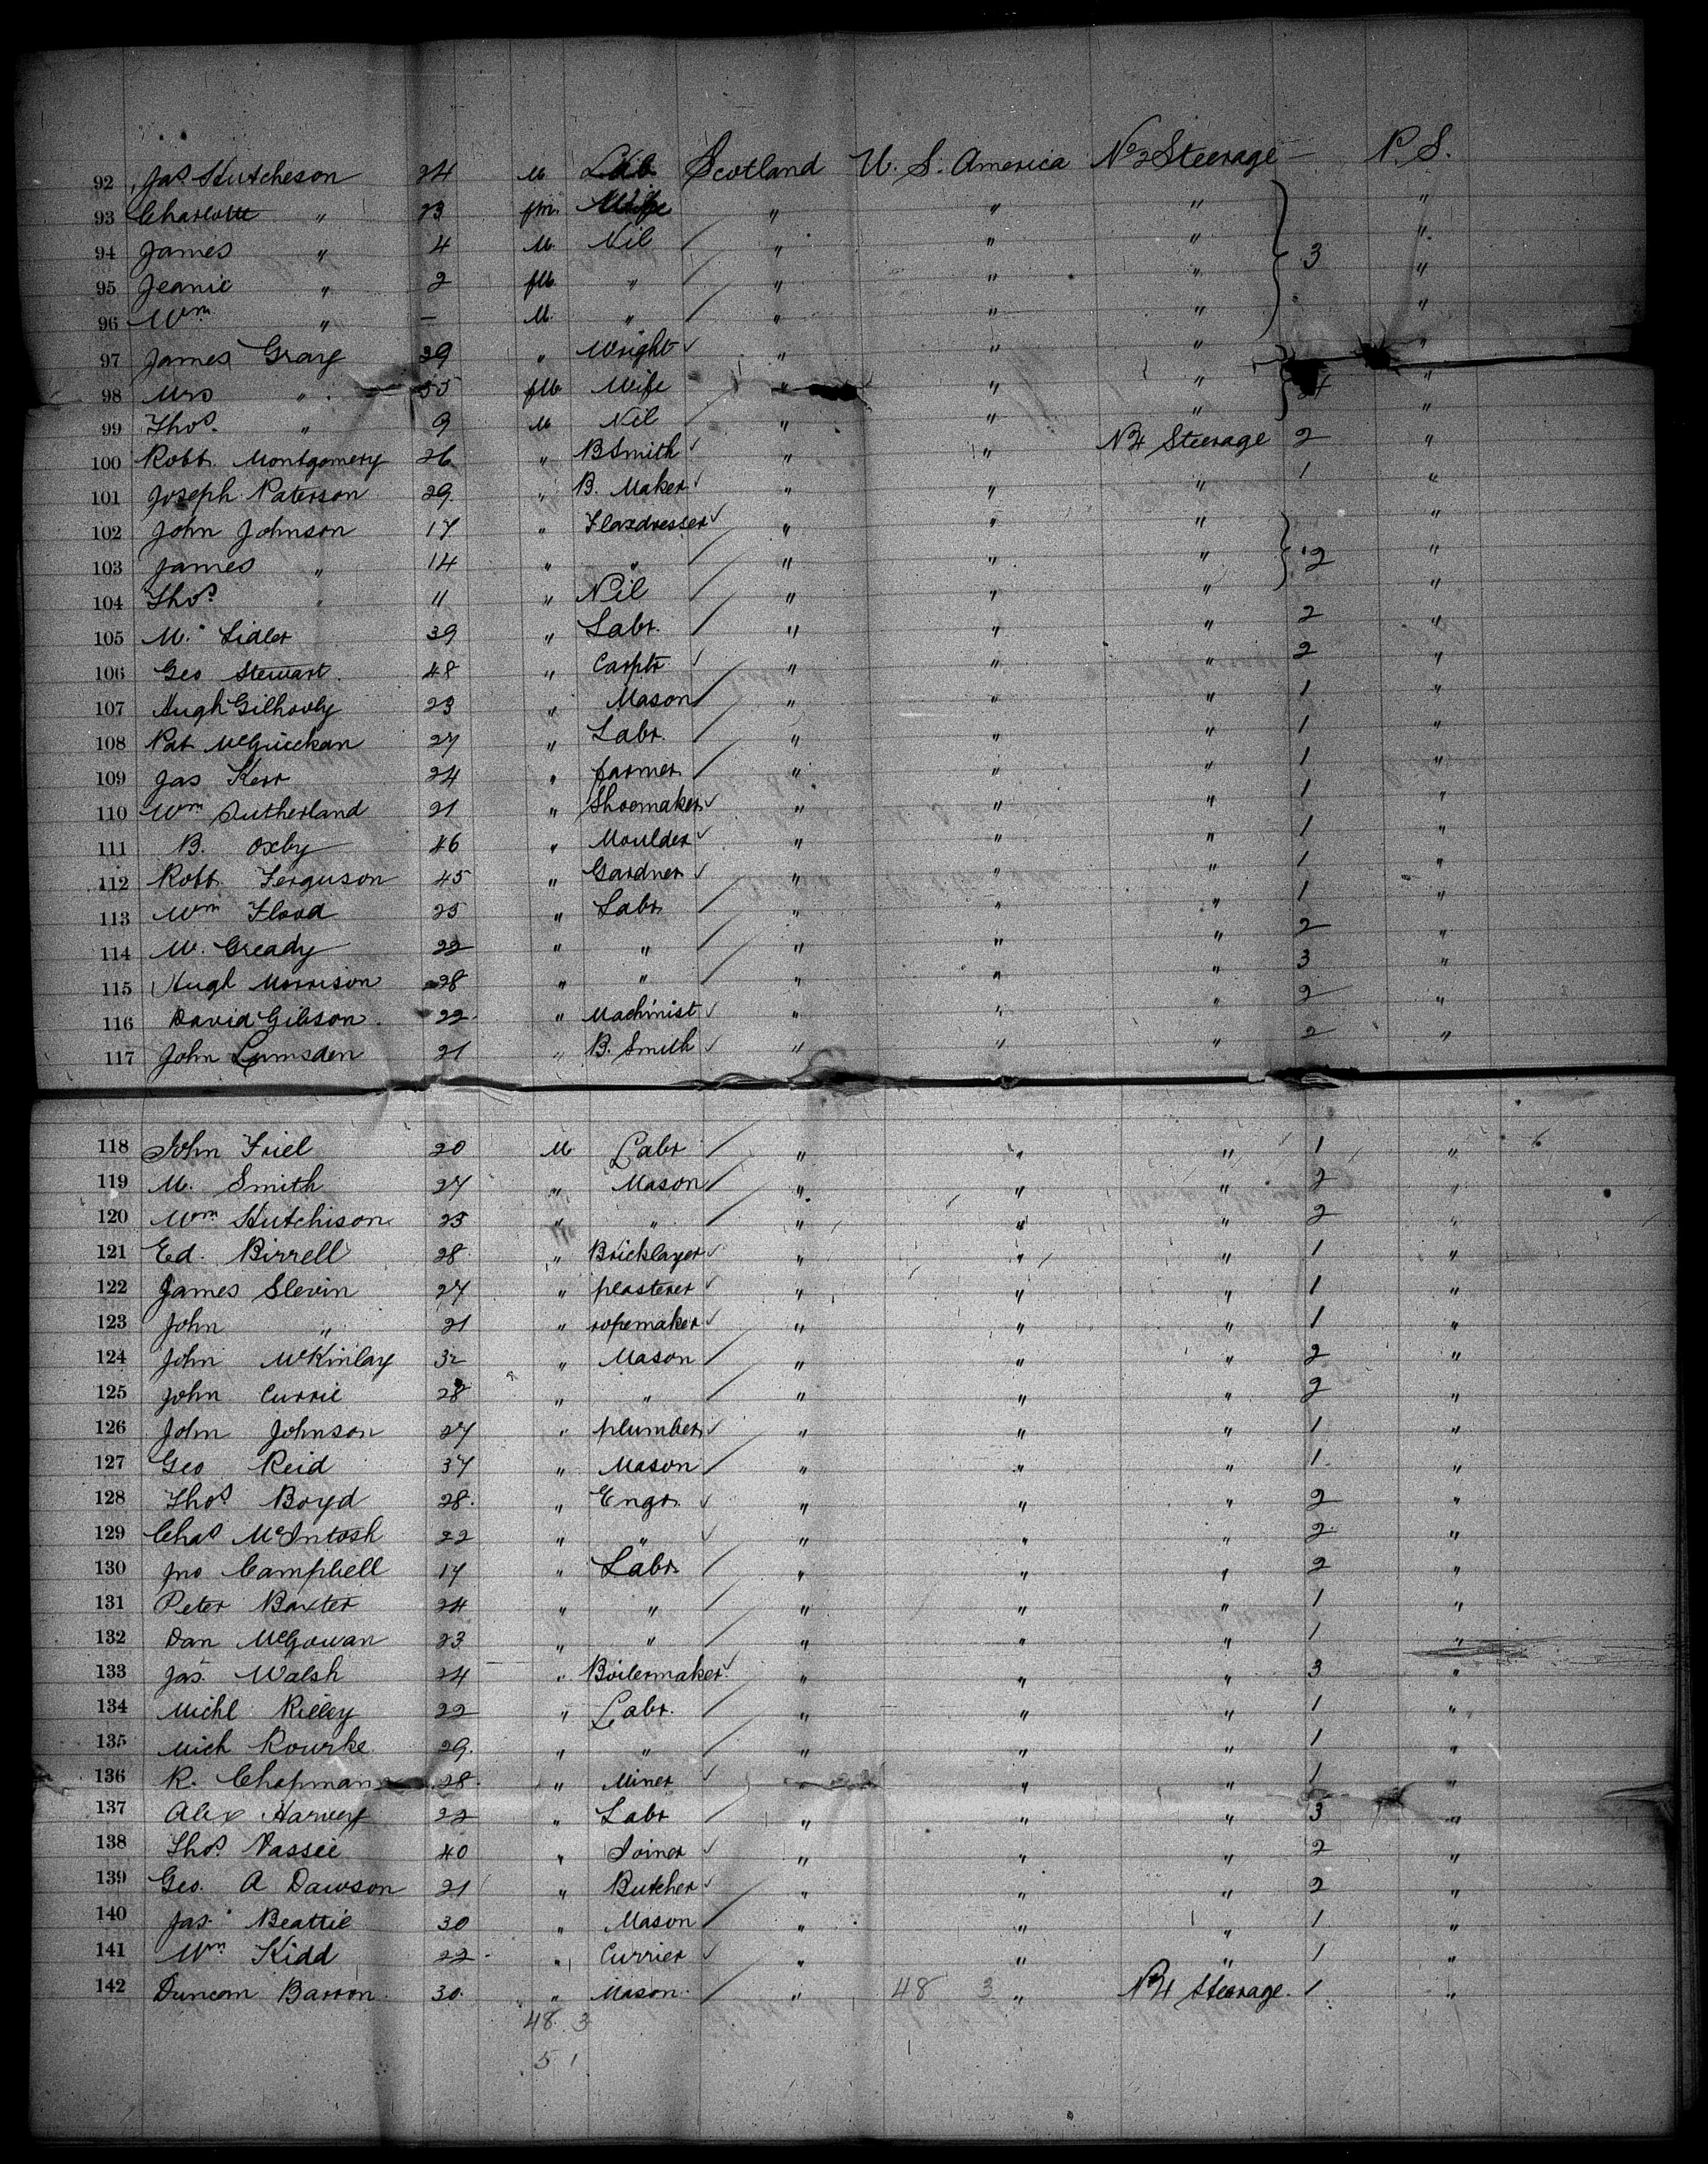 92 Jas Hutcheson 24 M Lab Scotland U. S. America No 2 Steerage — P. S.
93 Charlotte " 23 fm. Wife " " " "
94 James " 4 M. Nil " " " "
95 Jeanie " 2 fM " " " " 3 "
96 Wm " — M. " " " " "
97 James Gray 39 " Wright " " " "
98 Mrs " 35 fM Wife " " " "
99 Thos. " 9 M Nil " " " "
100 Robt. Montgomery 26 " BSmith " " No 4 Steerage 2 "
101 Joseph Paterson 29 " B. Maker " " " 1 "
102 John Johnson 17 " Flaxdresser " " " "
103 James " 14 " " " " " 2 "
104 Thos. " 11 " Nil " " " "
105 M. Sidler 39 " Labr. " " " 2 "
106 Geo Stewart. 48 " Carptr " " " 2 "
107 Hugh Gilhooly 23 " Mason " " " 1 "
108 Pat McGuickan 27 " Labr. " " " 1 "
109 Jas Kerr 24 " farmer " " " 1 "
110 Wm Sutherland 21 " Shoemaker " " " 1 "
111 B. Oxby 46 " Moulder " " " 1 "
112 Robt. Ferguson 45 " Gardner " " " 1 "
113 Wm Flood 25 " Labr " " " 1 "
114 M. Gready 22 " " " " " 2 "
115 Hugh Morrison 28 " " " " " 3 "
116 David Gibson. 22 " Machinist " " " 2 "
117 John Lumsden 21 " B. Smith " " " 2 "
118 John Friel 20 M Labr " " " 1 "
119 M. Smith 27 " Mason " " " 2 "
120 Wm Hutchison 23 " " " " " 2 "
121 Ed. Birrell 28 " Bricklayer " " " 1 "
122 James Slevin 27 " plasterer " " " 1 "
123 John " 21 " ropemaker " " " 1 "
124 John McKinlay 32 " Mason " " " 2 "
125 John Currie 28 " " " " " 2 "
126 John Johnson 27 " plumber " " " 1 "
127 Geo Reid 37 " Mason " " " 1 "
128 Thos Boyd 28. " Engr. " " " 2 "
129 Chas McIntosh 22 " " " " " 2 "
130 Jno Campbell 17 " Labr. " " " 2 "
131 Peter Baxter 24 " " " " " 1 "
132 Dan McGowan 23 " " " " " 1 "
133 Jas. Walsh 24 " Boilermaker " " " 3 "
134 Michl Rilley 22 " Labr. " " " 1 "
135 Mich Rourke 29. " " " " " 1 "
136 R. Chapman 28. " Miner " " " 1 "
137 Alex Harvey 22 " Labr " " " 3 "
138 Thos. Vassie 40 " Joiner " " " 2 "
139 Geo. A Dawson 21 " Butcher " " " 2 "
140 Jas. Beattie 30 " Mason " " " 1 "
141 Wm. Kidd 22 " Currier " " " 1 "
142 Duncan Barron. 30. " Mason. " 48 3 " No 4 Steerage. 1 "
48 3
5 1